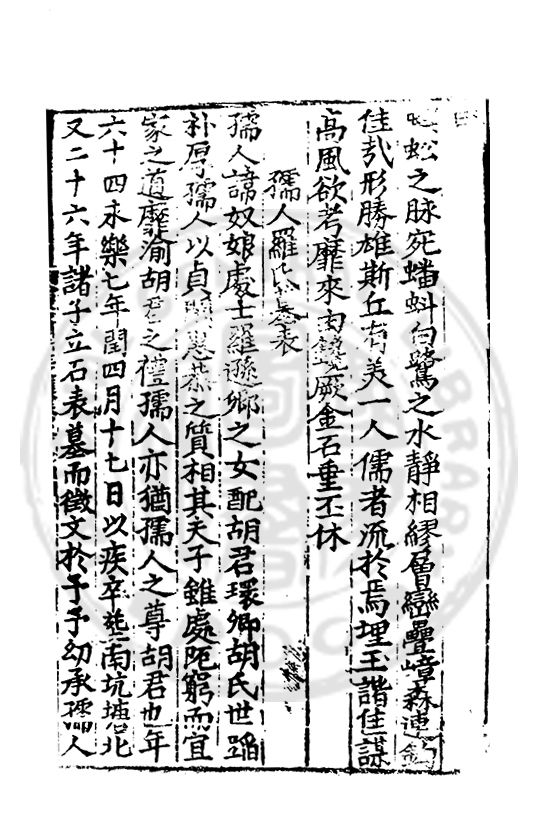 蜈蚣之脉宛蟠蚪白鷺之水靜相繆層巒疊嶂森連鈎
佳哉形勝雄斯丘有美一人儒者流於焉埋玉諧佳謀
高風欲考靡來由鐫厥金石垂丕休
孺人羅氏墓表
孺人諱奴娘處士羅遜鄉之女配胡君環卿胡氏世蹈
朴厚孺人以貞順惠恭之質相其夫子雖處阨窮而宜
家之道靡渝胡君之禮孺人亦猶孺人之尊胡君也年
六十四永樂七年閏四月十七日以疾卒塟南坑塘北
又二十六年諸子立石表墓而徵文於予予幼承孺人